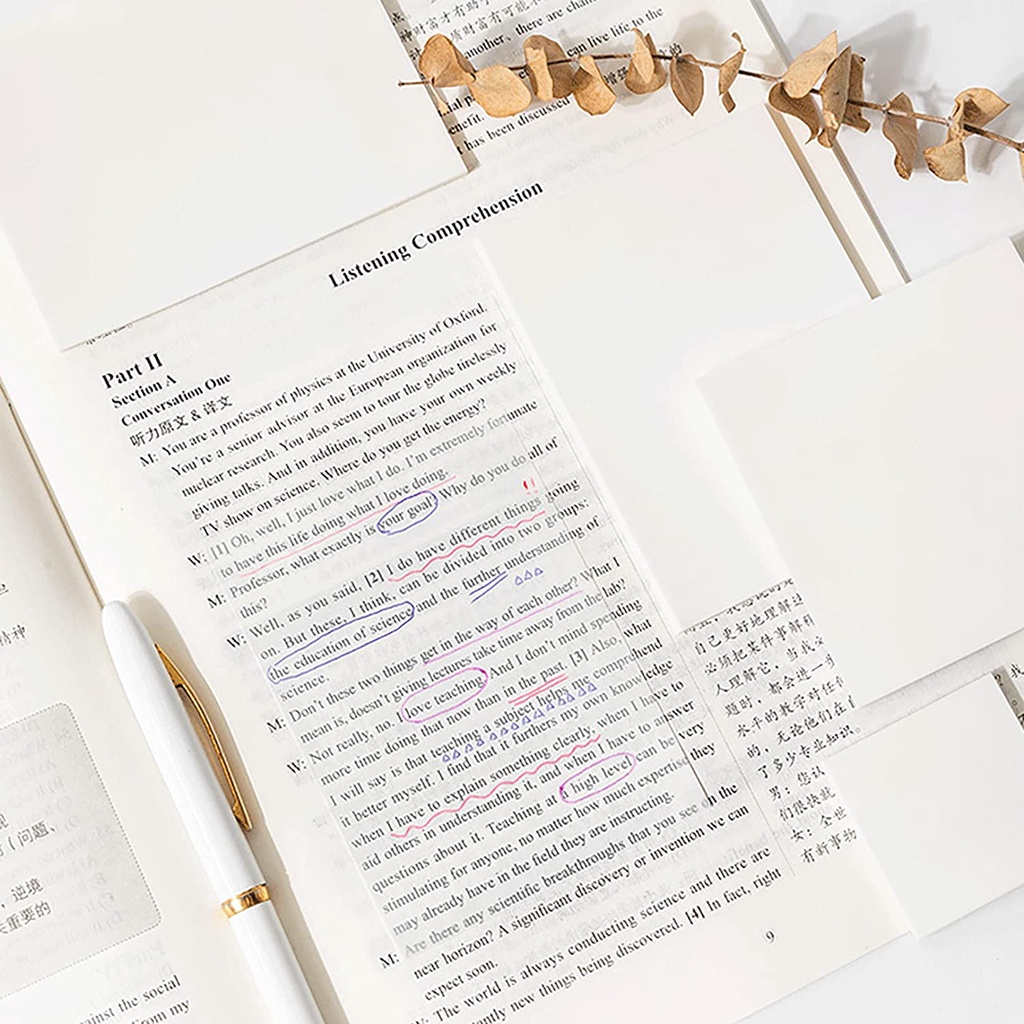 another、there are chan
can live life to the
enefit.
t has been discussed
Listening Comprehension
Part II
Section A
Conversation One
听力原文 & 译文
M: You are a professor of physics at the University of Oxford.
You're a senior advisor at the European organization for
nuclear research. You also seem to tour the globe tirelessly
giving talks. And in addition, you have your own weekly
TV show on science. Where do you get the energy?
W: [1] Oh, well, I just love what I do. I'm extremely fortunate
to have this life doing what I love doing.
M: Professor, what exactly is your goal? Why do you do all of
this?
W: Well, as you said, [2] I do have different things going
on. But these, I think, can be divided into two groups:
the education of science and the further understanding of
science.
M: Don't these two things get in the way of each other? What I
mean is, doesn't giving lectures take time away from the lab?
W: Not really, no. I love teaching. And I don't mind spending
more time doing that now than in the past. [3] Also, what
I will say is that teaching a subject helps me comprehend
it better myself. I find that it furthers my own knowledge
when I have to explain something clearly, when I have to
aid others in understanding it, and when I have to answer
questions about it. Teaching at a high level can be very
stimulating for anyone, no matter how much expertise they
may already have in the field they are instructing.
M: Are there any scientific breakthroughs that you see on the
near horizon? A significant discovery or invention we can
expect soon.
W: The world is always conducting science and there are
antly new things being discovered. [4] In fact, right
9
自己更好地理解
必须把某件事解释
人理解它，当我
题时，都会进一步
水平的教学对任何
的，无论他们在
了多少专业知识。
男：您认
们很快就
女：全世
有新事物
精神
（问题、
，逆境
重要的
ainst the social
From my